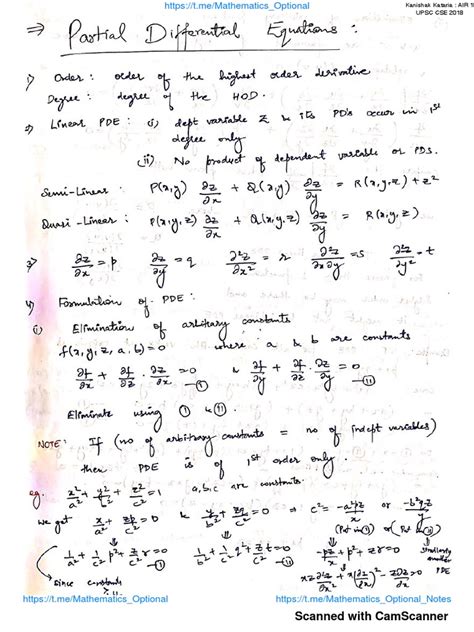 https://t.me/Mathematics_Optional
Kanishak Kataria : AIR 1
UPSC CSE 2018
⇒ Partial Differential Equations :
1) Order : order of the highest order derivative
Degree : degree of the HOD.
2) Linear PDE : (i) dept variable z & its PD's occur in 1st
degree only
(ii) No product of dependent variable or PDs.
Semi-Linear : P(x,y) ∂z/∂x + Q(x,y) ∂z/∂y = R(x,y,z) + z²
Quasi-Linear : P(x,y,z) ∂z/∂x + Q(x,y,z) ∂z/∂y = R(x,y,z)
3) ∂z/∂x = p ∂z/∂y = q ∂²z/∂x² = r ∂²z/∂x∂y = s ∂²z/∂y² = t
4) Formulation of PDE :
(i) Elimination of arbitrary constants
f(x,y,z,a,b) = 0 where : a & b are constants
∂f/∂x + ∂f/∂z · ∂z/∂x = 0 —(i) & ∂f/∂y + ∂f/∂z · ∂z/∂y = 0 —(ii)
Eliminate using (i) & (ii)
NOTE : If (no of arbitrary constants = no of indept variables)
then PDE is of 1st order only
eg. x²/a² + y²/b² + z²/c² = 1 a,b,c are constants.
we get x/a² + zp/c² = 0 & y/b² + zq/c² = 0 ⇒ c² = -a²pz/x or -b²qz/y
(Put in (i)) (or (Put in (ii))
1/a² + 1/c² p² + z/c² r = 0 1/b² + 1/c² q² + z/c² t = 0 -pz/x + p² + zr = 0 similarly another PDE
since constants
xz ∂²z/∂x² + x(∂z/∂x)² - z ∂z/∂x = 0
https://t.me/Mathematics_Optional
https://t.me/Mathematics_Optional_Notes
Scanned with CamScanner